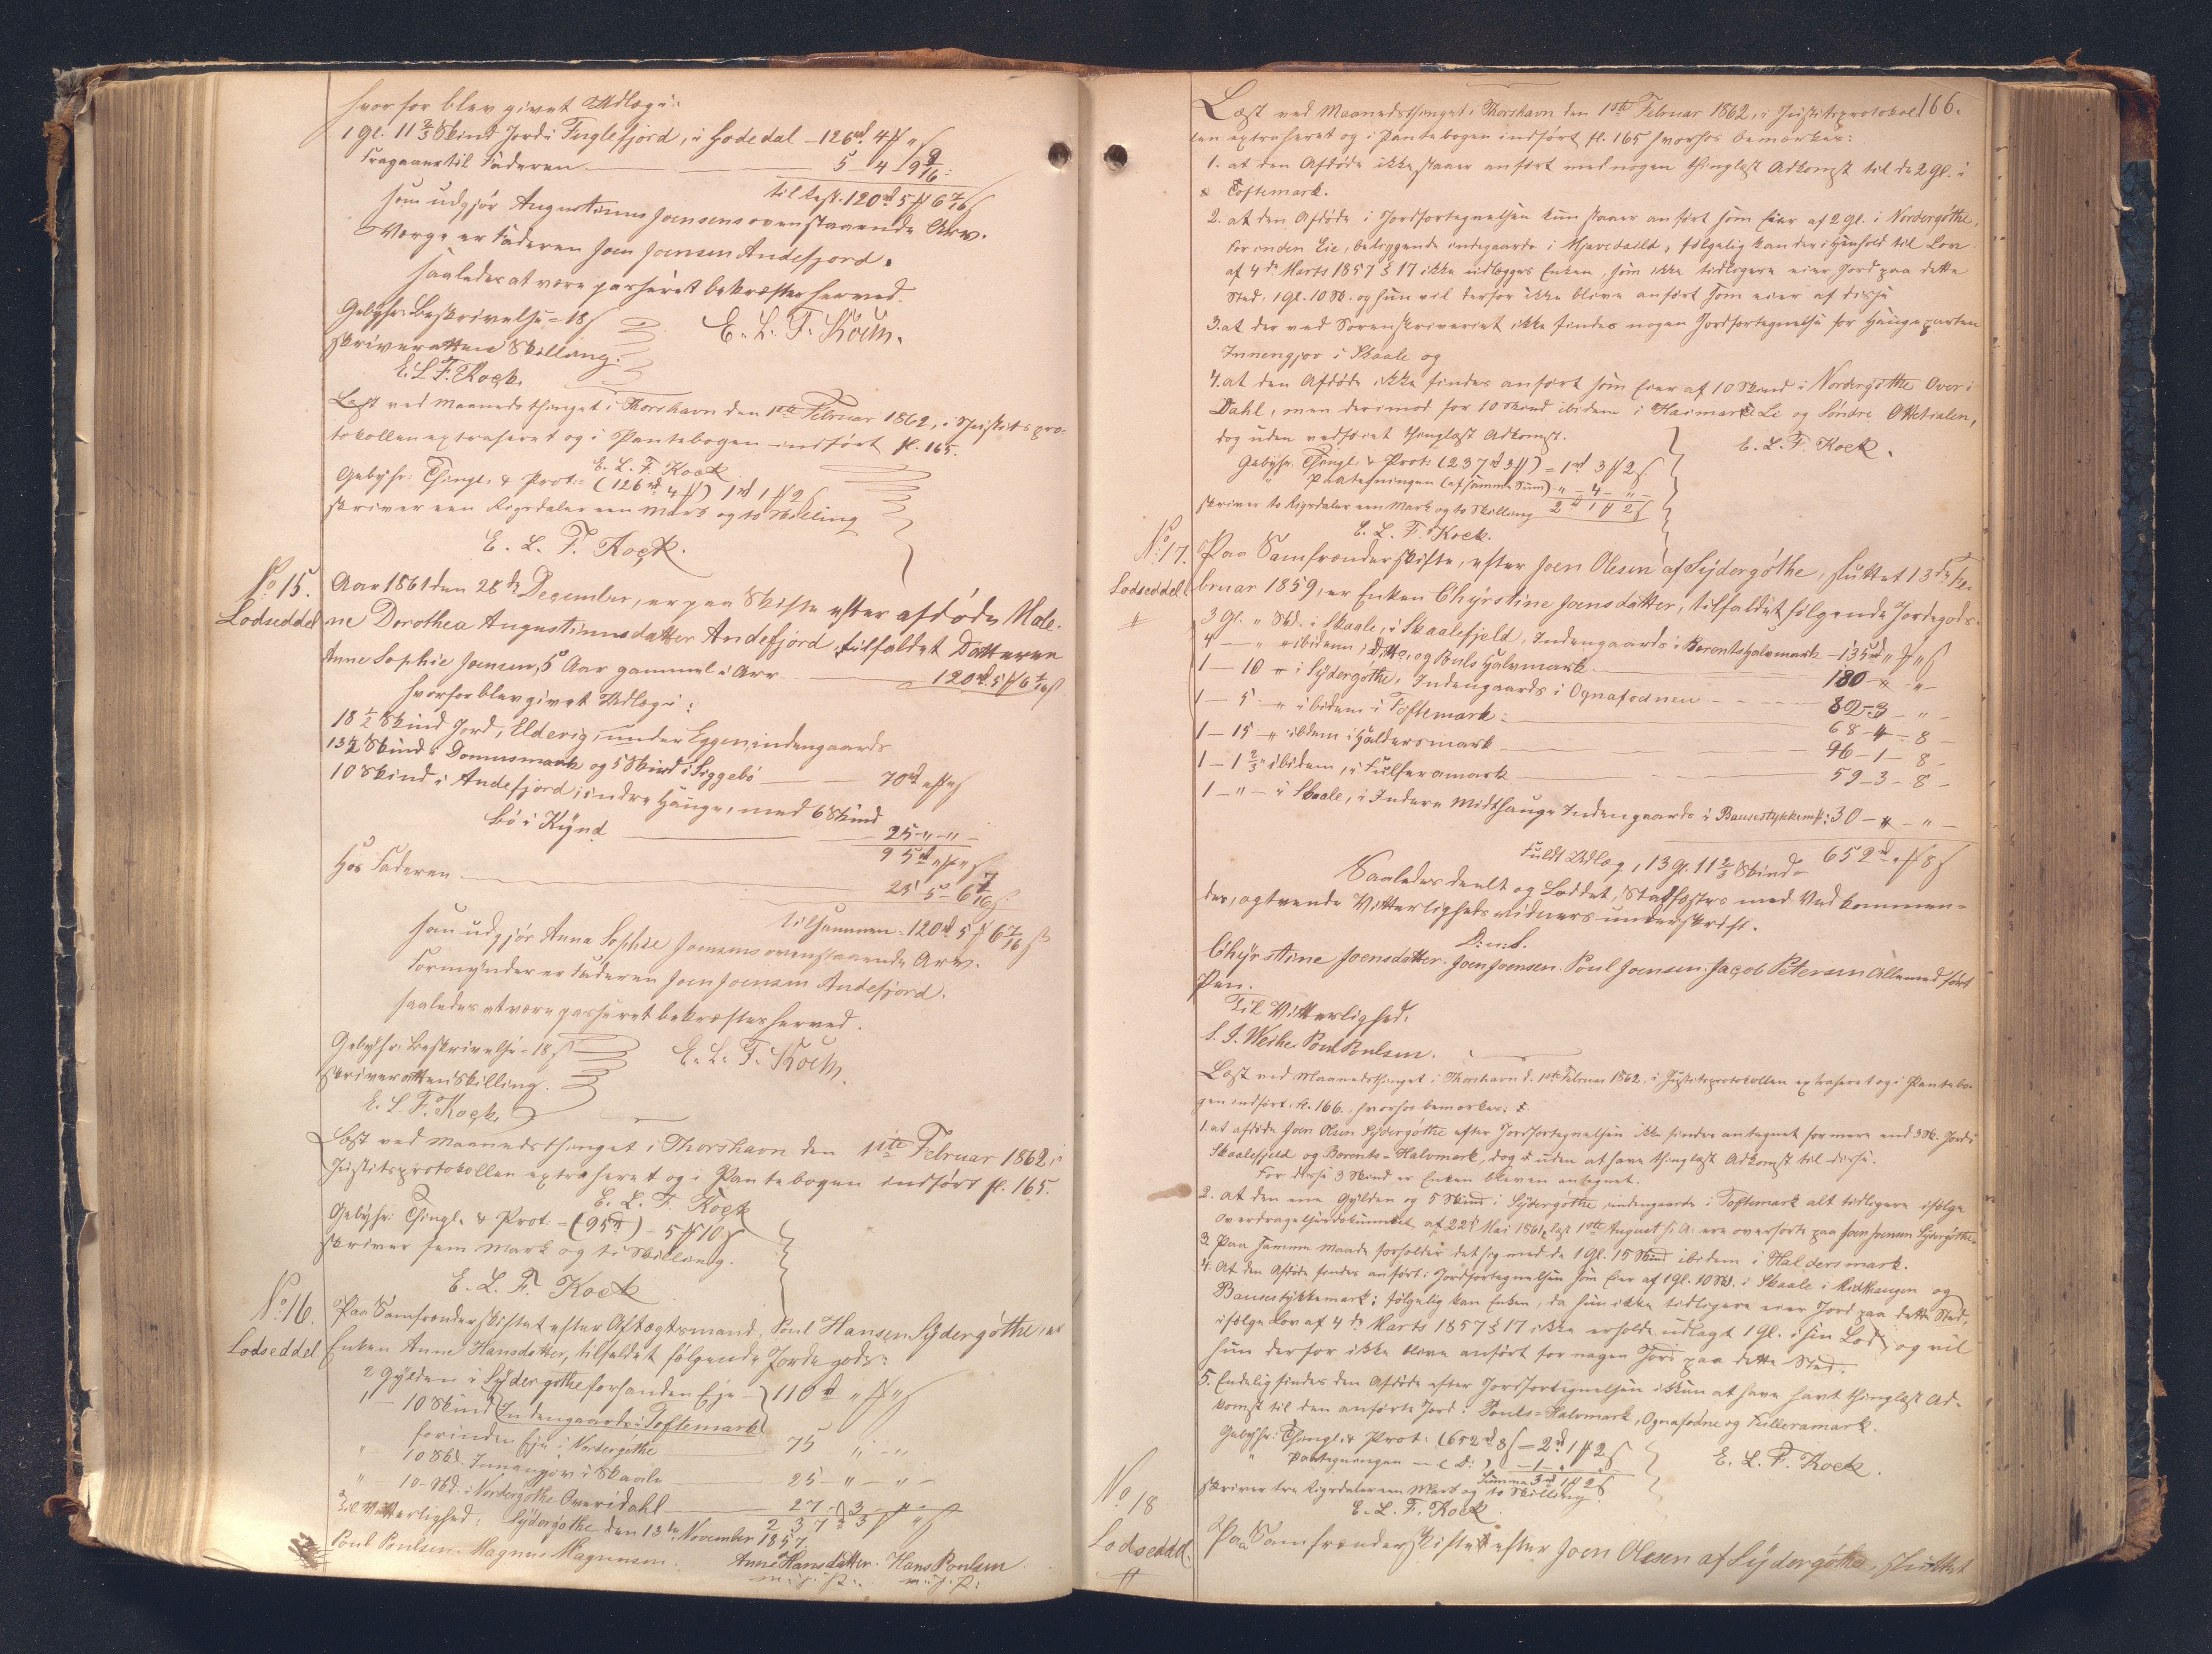 hvorfor blev givet Udlæg i:
1 gl. 11 2/3 Skind Jord i Fuglefjord, i Godedal – 126rd 4 ß "
Fragaaer til Faderen 5 4 9 9/16
til Rest. 120rd 5 ß 6 7/16
som udgjør Augustinus Joensens ovenstaaende Arv.
Værge er Faderen Joen Joensen Andefjord.
Saaledes at være passeret bekræftes herved.
Gebyhr: Beskrivelse = 18 ß
E. L. F. Koch.
skriver atten Skilling.
E. L. F. Kock.
Læst ved Maanedsthinget i Thorshavn den 1ste Februar 1862, i Justitspro-
tokollen extraheret og i Pantebogen indført fl. 165.
E. L. F. Kock
Gebyhr: Thingl. & Prot: (126rd 4 ß) 1rd 1 ß 2
skriver een Rigsdaler een Mark og to Skilling
E. L. F. Kock.
No 15. Aar 1861 den 28de December, er paa Skifte efter afdøde Male-
Lodseddel ne Dorothea Augustinusdatter Andefjord tilfaldet Datteren
Anne Sophie Joensen, 5 Aar gammel i Arv 120rd 5 ß 6 7/16
hvorfor blev givet Udlæg i:
18 1/2 Skind Jord, Elderig, under Eggen, indengaards
13 1/2 Skind i Dommsmark og 5 Skind i Siggebö 70rd " ß "
10 Skind i Andefjord, i indre Hauge, med 6 Skind
Bö i Kÿnd 25 – " – "
95rd " ß "
Hos Faderen 25 5 6 7/16
tilsammen 120rd 5 ß 6 7/16
som udgjør Anna Sophie Joensens ovenstaaende Arv.
Formynder er Faderen Joen Joensen Andefjord.
saaledes at være passeret bekræftes herved.
Gebyhr: Beskrivelse = 18 ß
E. L. F. Koch.
skriver atten Skilling.
E. L. F. Kock.
Læst ved Maanedsthinget i Thorshavn den 1ste Februar 1862, i
Justitsprotokollen extraheret og i Pantebogen indført fl. 165.
E. L. F. Kock
Gebyhr: Thingl. & Prot: – (95rd) – 5 ß 10
skriver fem Mark og ti Skilling.
E. L. F. Kock
No 16. Paa Samfrænderskiftet efter Aftægtsmand, Poul Hansen Sÿdergöthe, er
Lodseddel Enken Anne Hansdatter, tilfaldet følgende Jordegods:
2 Gÿlden i Sÿdergöthe forinden Eje 110rd " ß "
1 – 10 Skind Indengaards i Toftemark
forinden Eje i Nordergöthe 75 " "
" 10 Skd. Innengjov i Skaale 25 – " – "
" 10 – Skd. i Nordergöthe Overidahl 27 – 3 – "
237rd 3 ß "
Til Vitterlighed: Sÿdergöthe den 13de November 1857
Poul Poulsen. Magnus Magnusen. Anne Hansdatter. Hans Poulsen
m. f. P. m. f. P.
166.
Læst ved Maanedsthinget i Thorshavn den 1ste Februar 1862, i Justitsprotokol-
len extraheret og i Pantebogen indført fl. 165 hvorhos bemærkes:
1. at den Afdøde ikke staaer anført med nogen thinglæst Adkomst til de 2 gl. i
Toftemark.
2. at den Afdøde i Jordfortegnelsen kun staaer anført som Eier af 2 gl. i Nordergöthe,
forinden Eie, beliggende indengaards i Hjaredaild, følgelig kan der i Henhold til Lov
af 4de Marts 1857 § 17 ikke udlægges Enken, som ikke tidligere eier Jord paa dette
Sted, 1 gl. 10 Sk. og hun vil derfor ikke blive anført som eier af disse
3. at der ved Sorenskriveriet ikke findes nogen Jordfortegnelse for Haugeparten
Innengjov i Skaale og
4. at den Afdøde ikke findes anført som Eier af 10 Skind i Nordergöthe Over i
Dahl, men derimod for 10 Skind ibidem i Haimark Le og Söndre Ottetialen,
dog uden vedføiet thinglæst Adkomst.
E. L. F. Kock.
Gebyhr. Thingl. & Prot: (237rd 3 ß) = 1rd 3 ß 2
" Paategningen (af samme Sum) " – 4 – "
skriver to Rigsdaler een Mark og to Skilling 2rd 1 ß 2
E. L. F. Kock.
No 17. Paa Samfrænderskifte, efter Joen Olesen af Sÿdergöthe, sluttet 13de Fe-
Lodseddel bruar 1859, er Enken Chÿrstine Joensdatter, tilfaldet følgende Jordegods:
3 gl. " Skd. i Skaale, i Skaalefjeld, Indengaards i Berentshalvmark – 135rd " ß "
4 – " – ibidem i Ditto, og Pouls Halvmark 180 – " –
1 – 10 " i Sÿdergöthe, Indengaards i Ognafodnen 82 – 3 – "
1 – 5 – " ibidem i Toftemark 68 – 4 – 8
1 – 15 – " ibidem i Haldersmark 96 – 1 – 8
1 – 1 2/3 " ibidem, i Fulleramark 59 – 3 – 8
1 – " – i Skaale, i Inderu Midthauge Indengaards i Bausestykkemk: 30 – " – "
Fuldt Udlæg, 13 gl. 11 2/3 Skind = 652rd " ß 8
Saaledes deelt og Loddet, Stadfæstes med Vedkommen-
des, og tvende Vitterligheds vidners underskrift.
D. u. S.
Chÿrstine Joensdatter. Joen Joensen. Poul Joensen. Jacob Petersen Alle med ført
Pen.
Til Vitterlighed.
S. J. Weihe. Poul Poulsen.
Læst ved Maanedsthinget i Thorshavn d. 1ste Februar 1862, i Justitsprotokollen extraheret og i Pantebo-
gen indført, fl. 166. hvorhos bemærkes:
1. at afdøde Joen Olsen Sÿdergöthe efter Jordfortegnelsen ikke findes antegnet for mere end 3 Sk. Jord i
Skaalefjeld og Berents-Halvmark, dog uden at have thinglæst Adkomst til disse.
For disse 3 Skind er Enken bleven antegnet.
2. At den ene Gÿlden og 5 Skind i Sÿdergöthe indengaards i Toftemark alt tidligere ifølge
Overdragelsesdokument af 22d Mai 1861, læst 1ste August s. A. ere overførte paa Joen Joensen Sÿdergöthe.
3. Paa samme Maade forholder det sig med de 1 gl. 15 Skind ibidem i Haldersmark.
4. At den Afdøde findes anført i Jordfortegnelsen som Eier af 1 gl. 10 Sk. i Skaale i Midthaugen og
Bausestykkemark; følgelig kan Enken, da hun ikke tidligere eier Jord paa dette Sted,
ifølge Lov af 4de Marts 1857 § 17 ikke erholde udlagt 1 gl. i sin Lod, og vil
hun derfor ikke blive anført for nogen Jord paa dette Sted.
5. Endelig findes den Afdøde efter Jordfortegnelsen ikkun at have havt thinglæst Ad-
komst til den anførte Jord i Pouls-Halvmark, Ognafodne og Fulleramark.
Gebyhr: Thingl. & Prot: (652rd 8 ß) = 2rd 1 ß 2
E. L. F. Kock.
" Paategningen – (d:) – 1 – " "
Summa 3rd 1 ß 2
skriver tre Rigsdaler een Mark og to Skilling
E. L. F. Kock
No 18 Paa Samfrænderskiftet efter Joen Olesen af Sÿdergöthe, sluttet
Lodseddel